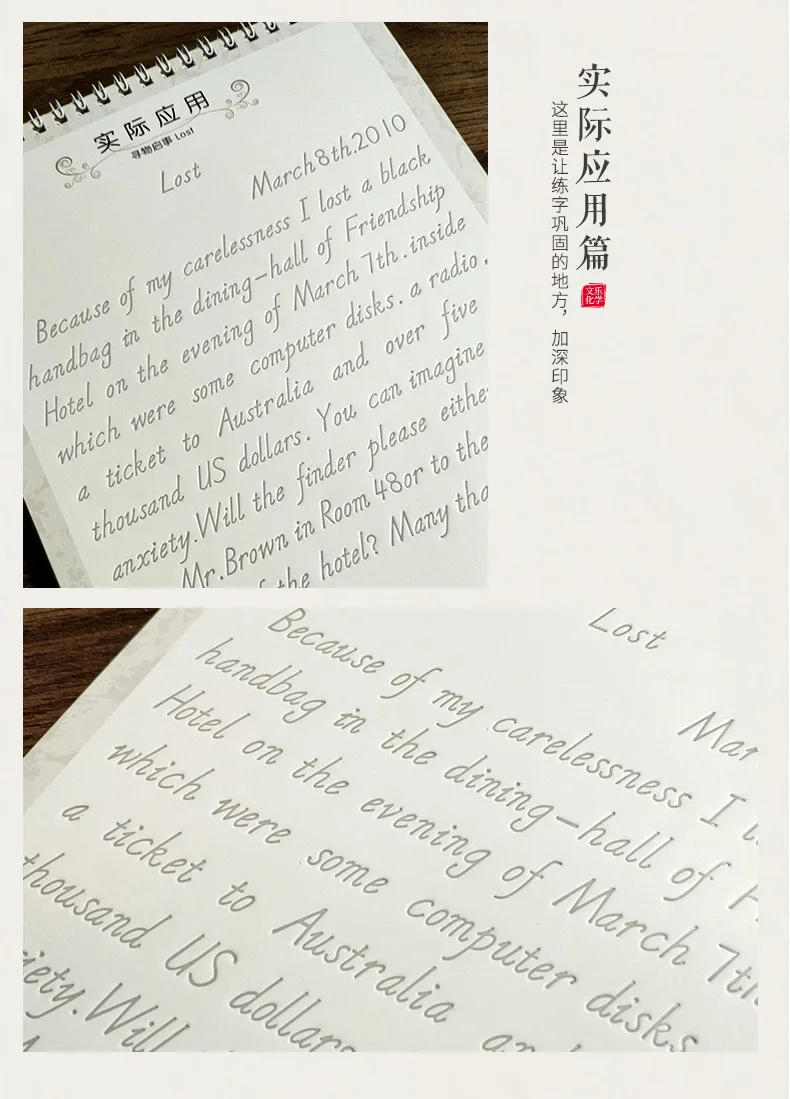 实际应用
寻物启事 Lost
Lost
March8th.2010
Because of my carelessness I lost a black
handbag in the dining-hall of Friendship
Hotel on the evening of March 7th.inside
which were some computer disks. a radio,
a ticket to Australia and over five
thousand US dollars. You can imagine
anxiety.Will the finder please eithe
Mr.Brown in Room 48or to the
the hotel? Many tha
实际应用篇
这里是让练字巩固的地方，加深印象
乐学文化
Lost
Mar
Because of my carelessness I l
handbag in the dining-hall of F
Hotel on the evening of March 7th
which were some computer disks
a ticket to Australia an
thousand US dollars
iety.Will